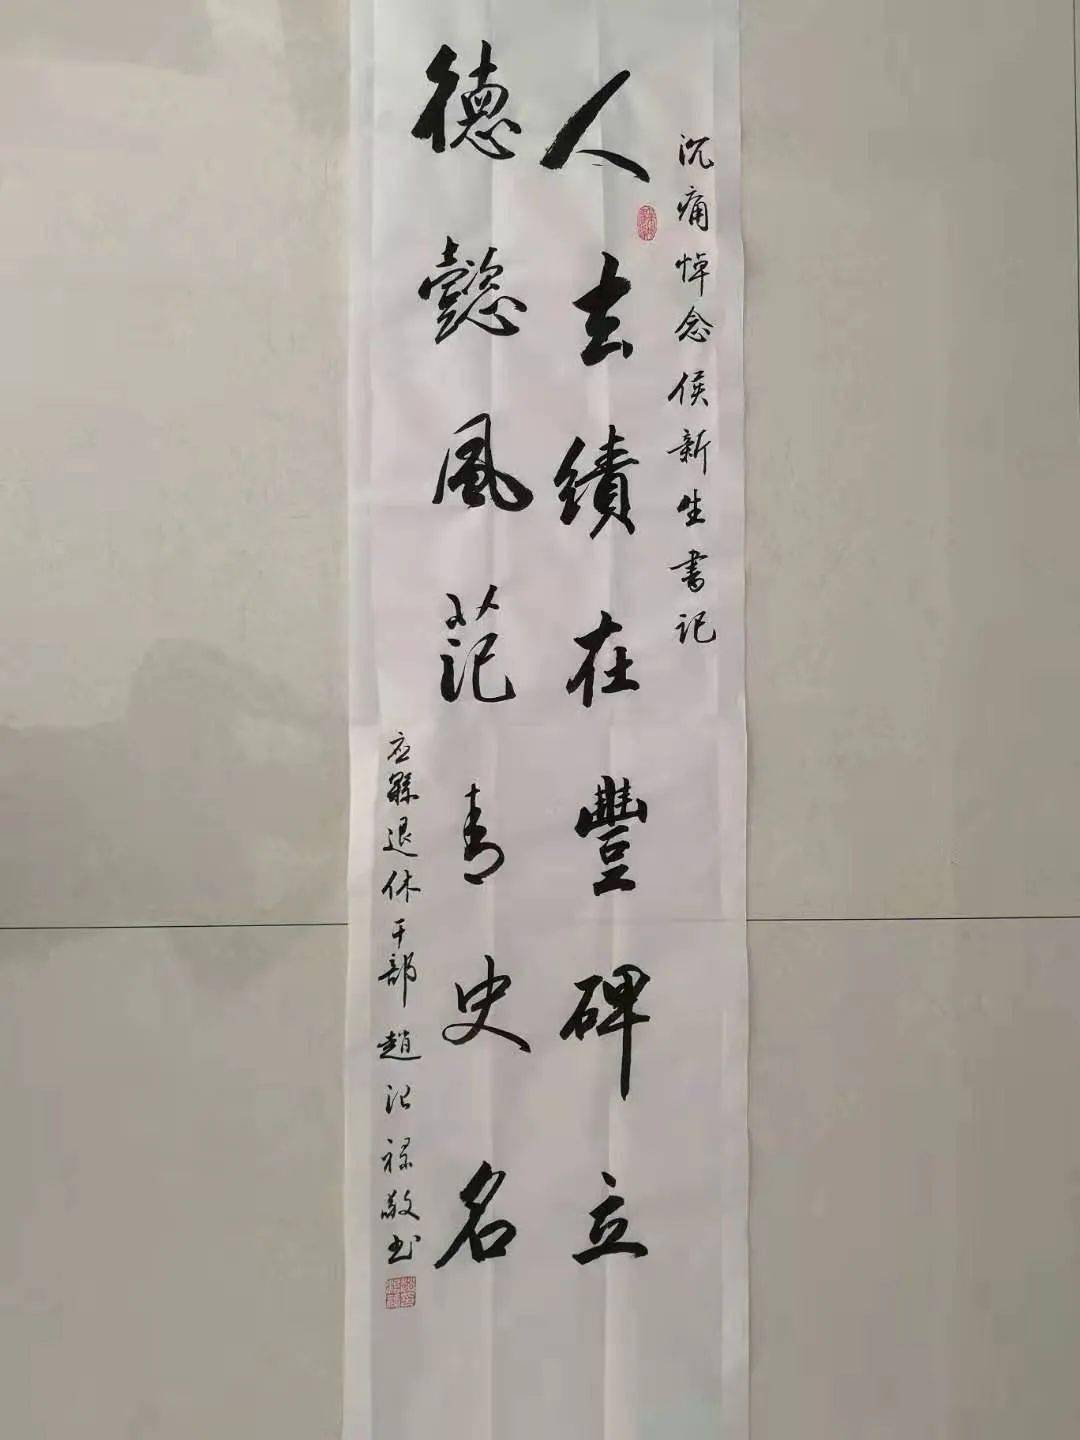 沉痛悼念侯新生书记
人去绩在豐碑立
德懿風范青史名
应縣退休干部 趙記祿敬书